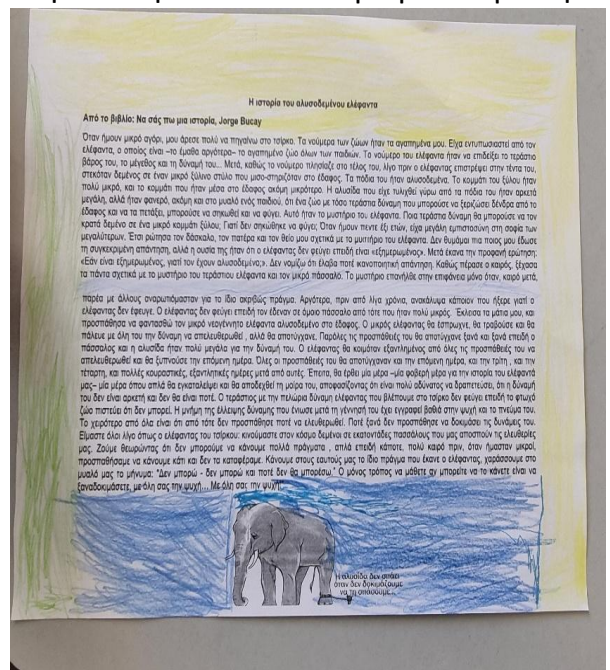 Η ιστορία του αλυσοδεμένου ελέφαντα
Από το βιβλίο: Να σάς πω μια ιστορία, Jorge Bucay
Όταν ήμουν μικρό αγόρι, μου άρεσε πολύ να πηγαίνω στο τσίρκο. Τα νούμερα των ζώων ήταν τα αγαπημένα μου. Είχα εντυπωσιαστεί από τον
ελέφαντα, ο οποίος είναι –το έμαθα αργότερα– το αγαπημένο ζώο όλων των παιδιών. Το νούμερο του ελέφαντα ήταν να επιδείξει το τεράστιο
βάρος του, το μέγεθος και τη δύναμή του... Μετά, καθώς το νούμερο πλησίαζε στο τέλος του, λίγο πριν ο ελέφαντας επιστρέψει στην τέντα του,
στεκόταν δεμένος σε έναν μικρό ξύλινο στύλο που μισο-στηριζόταν στο έδαφος. Τα πόδια του ήταν αλυσοδεμένα. Το κομμάτι του ξύλου ήταν
πολύ μικρό, και το κομμάτι που ήταν μέσα στο έδαφος ακόμη μικρότερο. Η αλυσίδα που είχε τυλιχθεί γύρω από τα πόδια του ήταν αρκετά
μεγάλη, αλλά ήταν φανερό, ακόμη και στο μυαλό ενός παιδιού, ότι ένα ζώο με τόσο τεράστια δύναμη που μπορούσε να ξεριζώσει δένδρα από το
έδαφος και να τα πετάξει, μπορούσε να σηκωθεί και να φύγει. Αυτό ήταν το μυστήριο του ελέφαντα. Ποια τεράστια δύναμη θα μπορούσε να τον
κρατά δεμένο σε ένα μικρό κομμάτι ξύλου; Γιατί δεν σηκώθηκε να φύγει; Όταν ήμουν πέντε έξι ετών, είχα μεγάλη εμπιστοσύνη στη σοφία των
μεγαλύτερων. Έτσι ρώτησα τον δάσκαλο, τον πατέρα και τον θείο μου σχετικά με το μυστήριο του ελέφαντα. Δεν θυμάμαι πια ποιος μου έδωσε
τη συγκεκριμένη απάντηση, αλλά η ουσία της ήταν ότι ο ελέφαντας δεν φεύγει επειδή είναι «εξημερωμένος». Μετά έκανα την προφανή ερώτηση:
«Εάν είναι εξημερωμένος, γιατί τον έχουν αλυσοδεμένο;». Δεν νομίζω ότι έλαβα ποτέ ικανοποιητική απάντηση. Καθώς πέρασε ο καιρός, ξέχασα
τα πάντα σχετικά με το μυστήριο του τεράστιου ελέφαντα και τον μικρό πάσσαλο. Το μυστήριο επανήλθε στην επιφάνεια μόνο όταν, καιρό μετά,
παρέα με άλλους αναρωτιόμασταν για το ίδιο ακριβώς πράγμα. Αργότερα, πριν από λίγα χρόνια, ανακάλυψα κάποιον που ήξερε γιατί ο
ελέφαντας δεν έφευγε. Ο ελέφαντας δεν φεύγει επειδή τον έδεναν σε όμοιο πάσσαλο από τότε που ήταν πολύ μικρός. Έκλεισα τα μάτια μου, και
προσπάθησα να φαντασθώ τον μικρό νεογέννητο ελέφαντα αλυσοδεμένο στο έδαφος. Ο μικρός ελέφαντας θα έσπρωχνε, θα τραβούσε και θα
πάλευε με όλη του την δύναμη να απελευθερωθεί , αλλά θα αποτύγχανε. Παρόλες τις προσπάθειές του θα αποτύγχανε ξανά και ξανά επειδή ο
πάσσαλος και η αλυσίδα ήταν πολύ μεγάλα για την δύναμή του. Ο ελέφαντας θα κοιμόταν εξαντλημένος από όλες τις προσπάθειές του να
απελευθερωθεί και θα ξυπνούσε την επόμενη ημέρα. Όλες οι προσπάθειές του θα αποτύγχαναν και την επόμενη ημέρα, και την τρίτη , και την
τέταρτη, και πολλές κουραστικές, εξαντλητικές ημέρες μετά από αυτές. Έπειτα, θα έρθει μία μέρα –μία φοβερή μέρα για την ιστορία του ελέφαντά
μας– μία μέρα όπου απλά θα εγκαταλείψει και θα αποδεχθεί τη μοίρα του, αποφασίζοντας ότι είναι πολύ αδύνατος να δραπετεύσει, ότι η δύναμή
του δεν είναι αρκετή και δεν θα είναι ποτέ. Ο τεράστιος με την πελώρια δύναμη ελέφαντας που βλέπουμε στο τσίρκο δεν φεύγει επειδή το φτωχό
ζώο πιστεύει ότι δεν μπορεί. Η μνήμη της έλλειψης δύναμης που ένιωσε μετά τη γέννησή του έχει εγγραφεί βαθιά στην ψυχή και το πνεύμα του.
Το χειρότερο από όλα είναι ότι από τότε δεν προσπάθησε ποτέ να ελευθερωθεί. Ποτέ ξανά δεν προσπάθησε να δοκιμάσει τις δυνάμεις του.
Είμαστε όλοι λίγο όπως ο ελέφαντας του τσίρκου: κινούμαστε στον κόσμο δεμένοι σε εκατοντάδες πασσάλους που μας αποστούν τις ελευθερίες
μας. Ζούμε θεωρώντας ότι δεν μπορούμε να κάνουμε πολλά πράγματα , απλά επειδή κάποτε, πολύ καιρό πριν, όταν ήμασταν μικροί,
προσπαθήσαμε να κάνουμε κάτι και δεν τα καταφέραμε. Κάνουμε στους εαυτούς μας το ίδιο πράγμα που έκανε ο ελέφαντας, χαράσσουμε στο
μυαλό μας το μήνυμα: "Δεν μπορώ - δεν μπορώ και ποτέ δεν θα μπορέσω." Ο μόνος τρόπος να μάθετε αν μπορείτε να το κάνετε είναι να
ξαναδοκιμάσετε, με όλη σας την ψυχή... Με όλη σας την ψυχή!
Η αλυσίδα δεν σπάει
όταν δεν δοκιμάζουμε
να τη σπάσουμε...